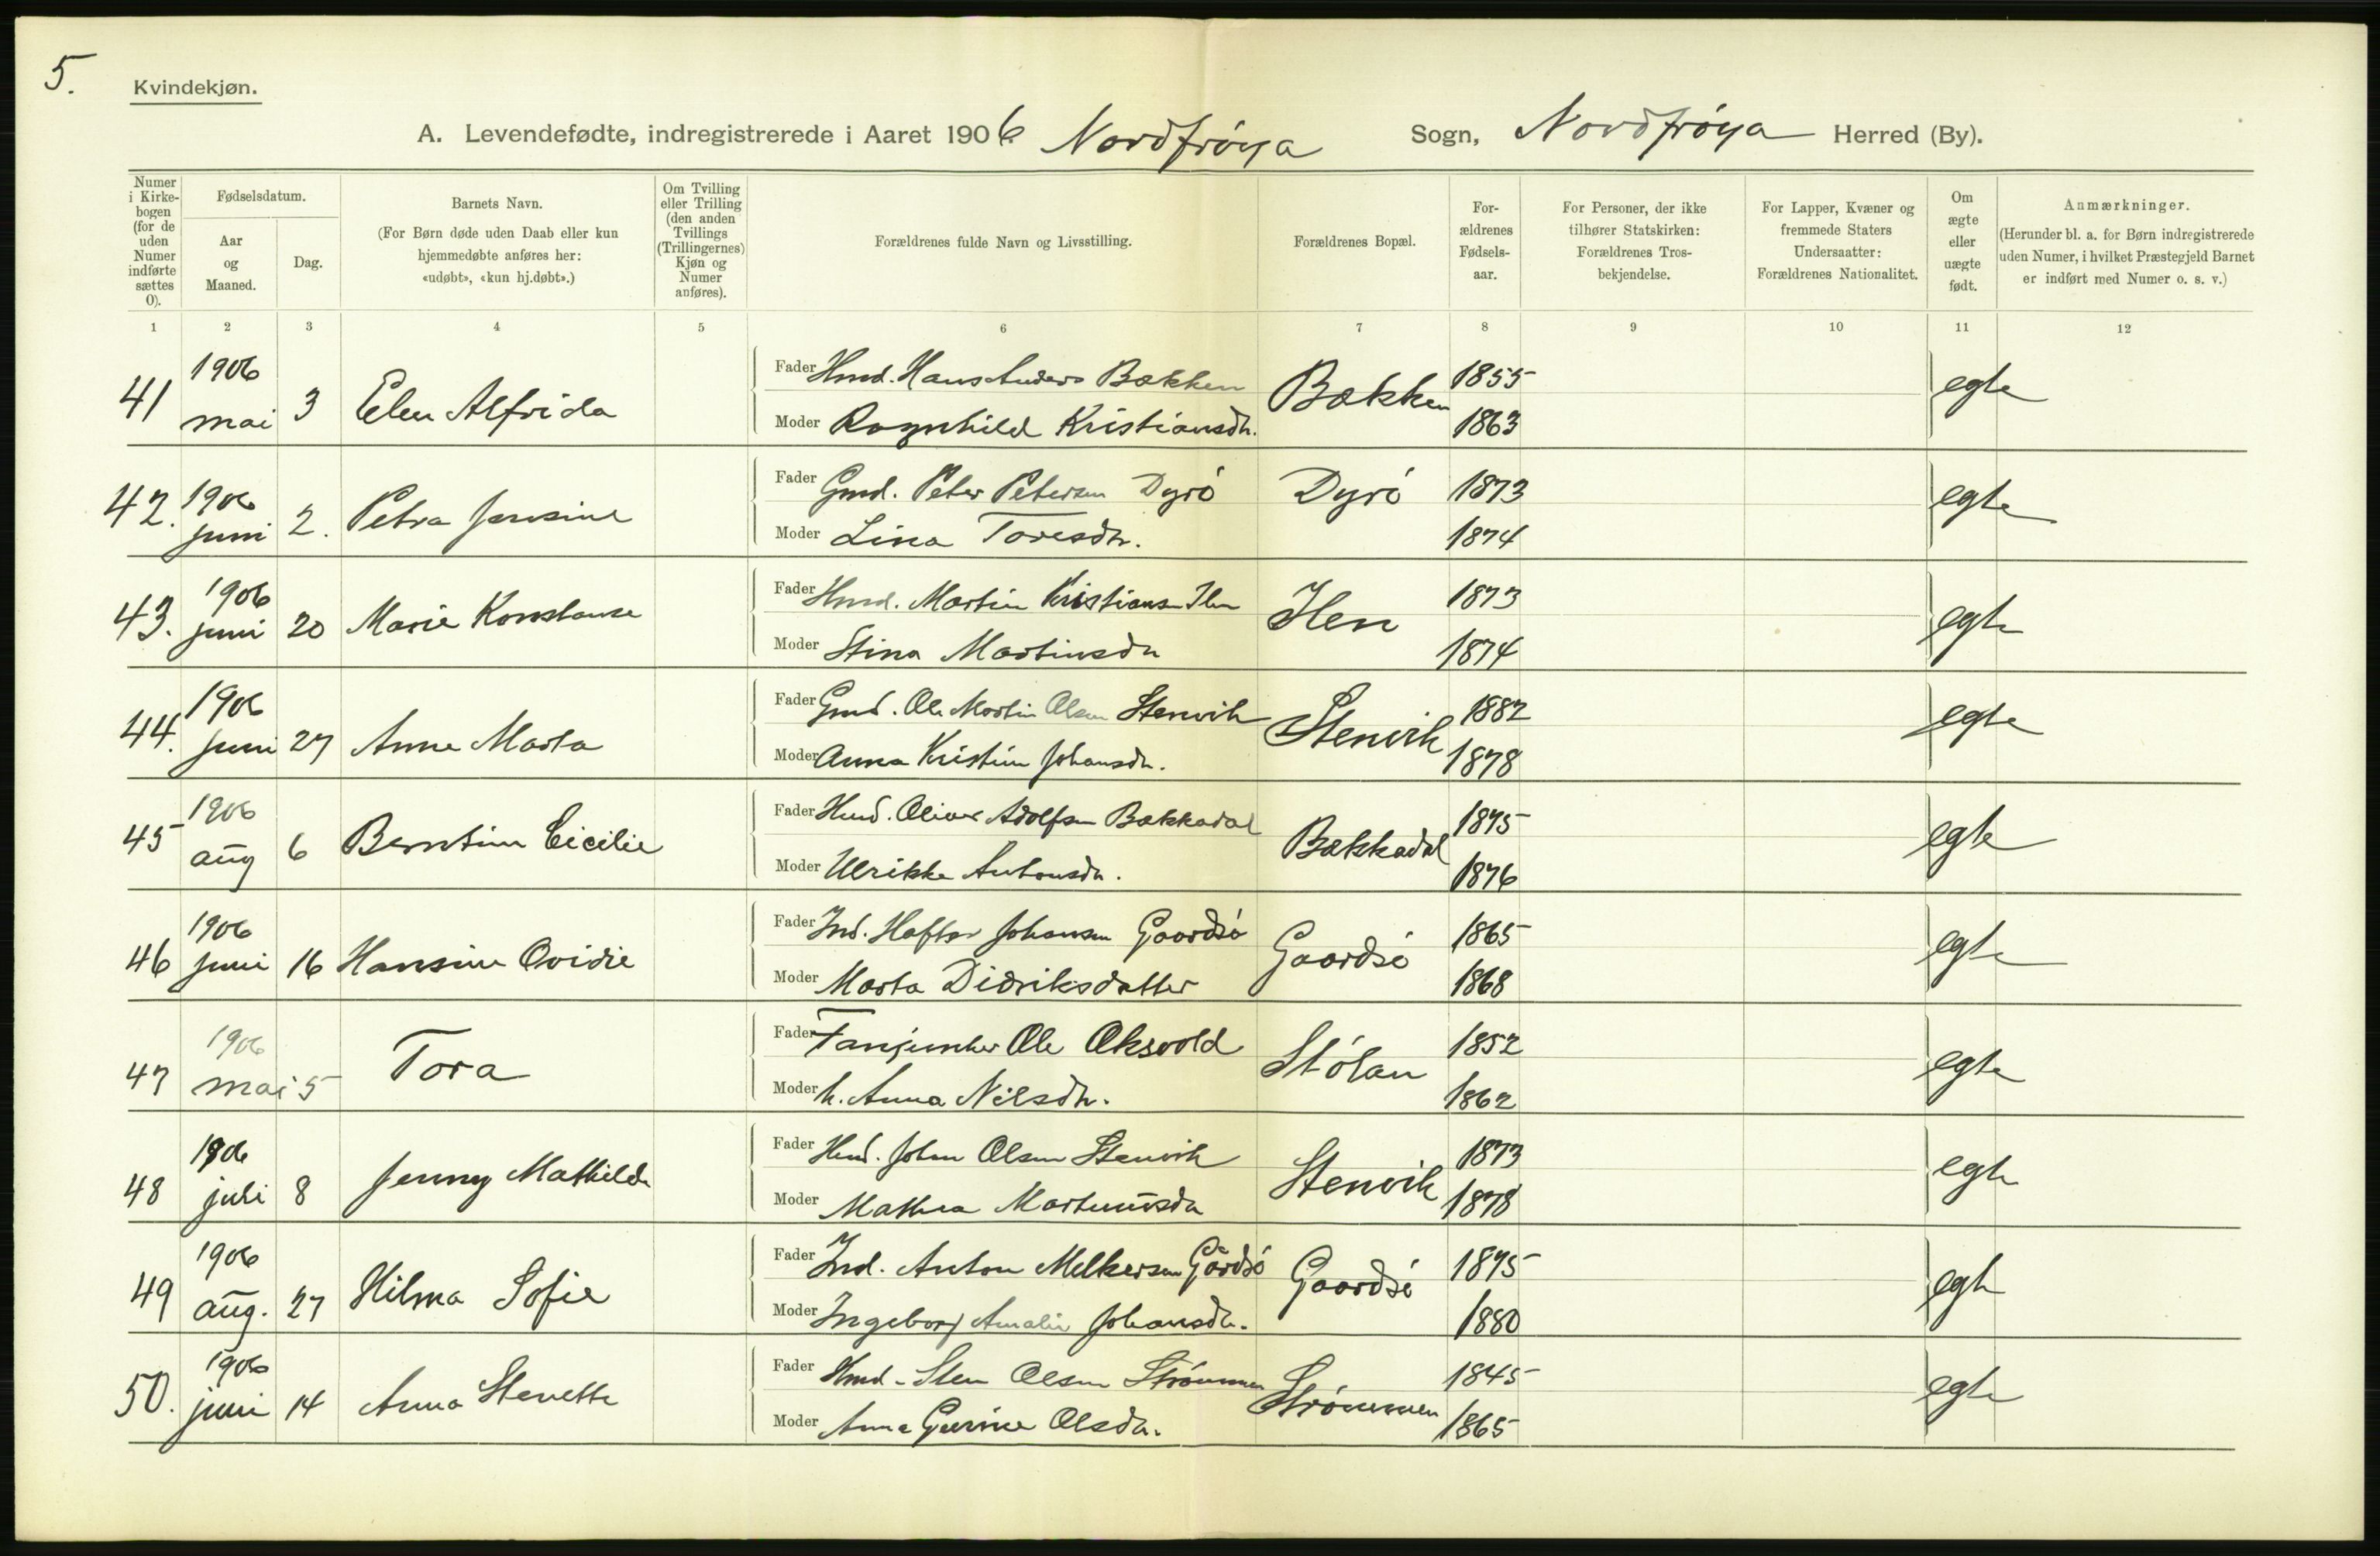 5.
Kvindekjøn.
A. Levendefødte, indregistrerede i Aaret 1906 Nordfröya Sogn, Nordfröya Herred (By).
Numer i Kirkebogen (for de uden Numer indførte sættes 0).
Fødselsdatum.
Aar og Maaned.
Dag.
Barnets Navn.
(For Børn døde uden Daab eller kun hjemmedøbte anføres her: «udøbt», «kun hj.døbt».)
Om Tvilling eller Trilling (den anden Tvillings (Trillingernes) Kjøn og Numer anføres).
Forældrenes fulde Navn og Livsstilling.
Forældrenes Bopæl.
For-ældrenes Fødsels-aar.
For Personer, der ikke tilhører Statskirken: Forældrenes Tros-bekjendelse.
For Lapper, Kvæner og fremmede Staters Undersaatter: Forældrenes Nationalitet.
Om ægte eller uægte født.
Anmærkninger.
(Herunder bl. a. for Børn indregistrerede uden Numer, i hvilket Præstegjeld Barnet er indført med Numer o. s. v.)
1 2 3 4 5 6 7 8 9 10 11 12
41 1906 mai 3 Elen Alfrida Fader Hmd. Hans Anders Bækken Bækken 1855 egte
Moder Ragnhild Kristiansdtr. 1863
42. 1906 juni 2. Petra Jensine Fader Gmd. Peter Petersen Dyrö Dyrö 1873 egte
Moder Lina Toresdtr. 1874
43. 1906 juni 20 Marie Konstanse Fader Hmd. Martin Kristiansen Ilen Ilen 1873 egte
Moder Stina Martinsdtr 1874
44. 1906 juni 27 Anne Marta Fader Gmd. Ole Martin Olsen Stenvik Stenvik 1882 egte
Moder Anna Kristine Johansdtr. 1878
45 1906 aug 6 Berntine Cicilie Fader Hmd. Oliver Adolfsen Bækkadal Bækkadal 1875 egte
Moder Ulrikke Antonsdtr. 1876
46 1906 juni 16 Hansine Ovidie Fader Ind. Hafter Johansen Gaardsö Gaardsö 1865 egte
Moder Marta Didriksdatter 1868
47 1906 mai 5 Tora Fader Fanejunker Ole Oksvold Stölan 1852 egte
Moder h. Anna Nilsdtr. 1862
48 1906 juli 8 Jenny Mathilde Fader Hmd. Johan Olsen Stenvik Stenvik 1873 egte
Moder Mathea Martinusdtr 1878
49 1906 aug. 27 Hilma Sofie Fader Ind. Anton Melkersen Gårdsö Gaardsö 1875 egte
Moder Ingeborg Amalie Johansdtr. 1880
50. 1906 juni 14 Anna Stenette Fader Hmd. Sten Olsen Strömmen Strömmen 1845 egte
Moder Anne Gurine Olsdtr. 1865